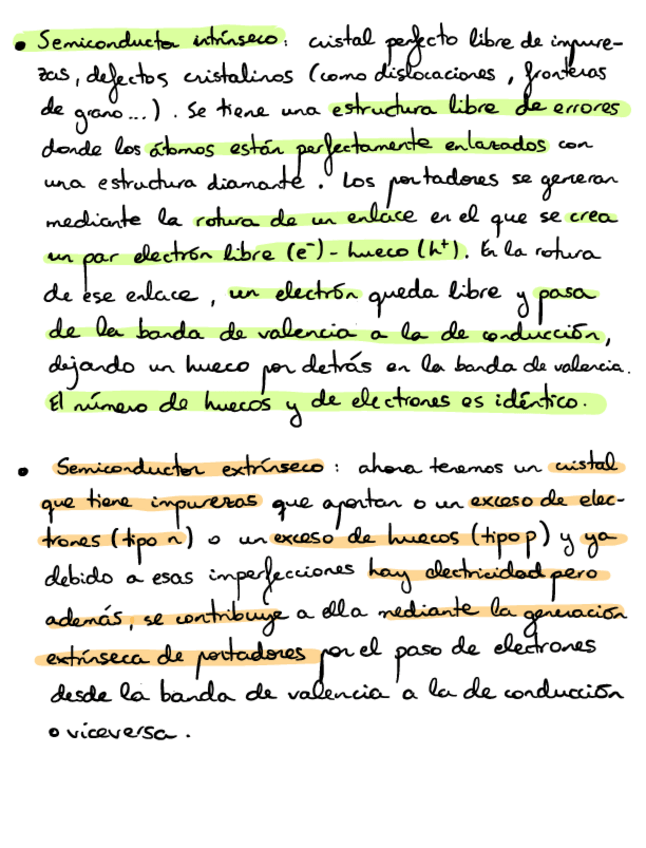 • Semiconductor intrínseco: cristal perfecto libre de impure-
zas, defectos cristalinos (como dislocaciones, fronteras
de grano...). Se tiene una estructura libre de errores
donde los átomos están perfectamente enlazados con
una estructura diamante. Los portadores se generan
mediante la rotura de un enlace en el que se crea
un par electrón libre (e⁻) - hueco (h⁺). En la rotura
de ese enlace, un electrón queda libre y pasa
de la banda de valencia a la de conducción,
dejando un hueco por detrás en la banda de valencia.
El número de huecos y de electrones es idéntico.
• Semiconductor extrínseco: ahora tenemos un cristal
que tiene impurezas que aportan o un exceso de elec-
trones (tipo n) o un exceso de huecos (tipo p) y ya
debido a esas imperfecciones hay electricidad pero
además, se contribuye a ella mediante la generación
extrínseca de portadores por el paso de electrones
desde la banda de valencia a la de conducción
o viceversa.